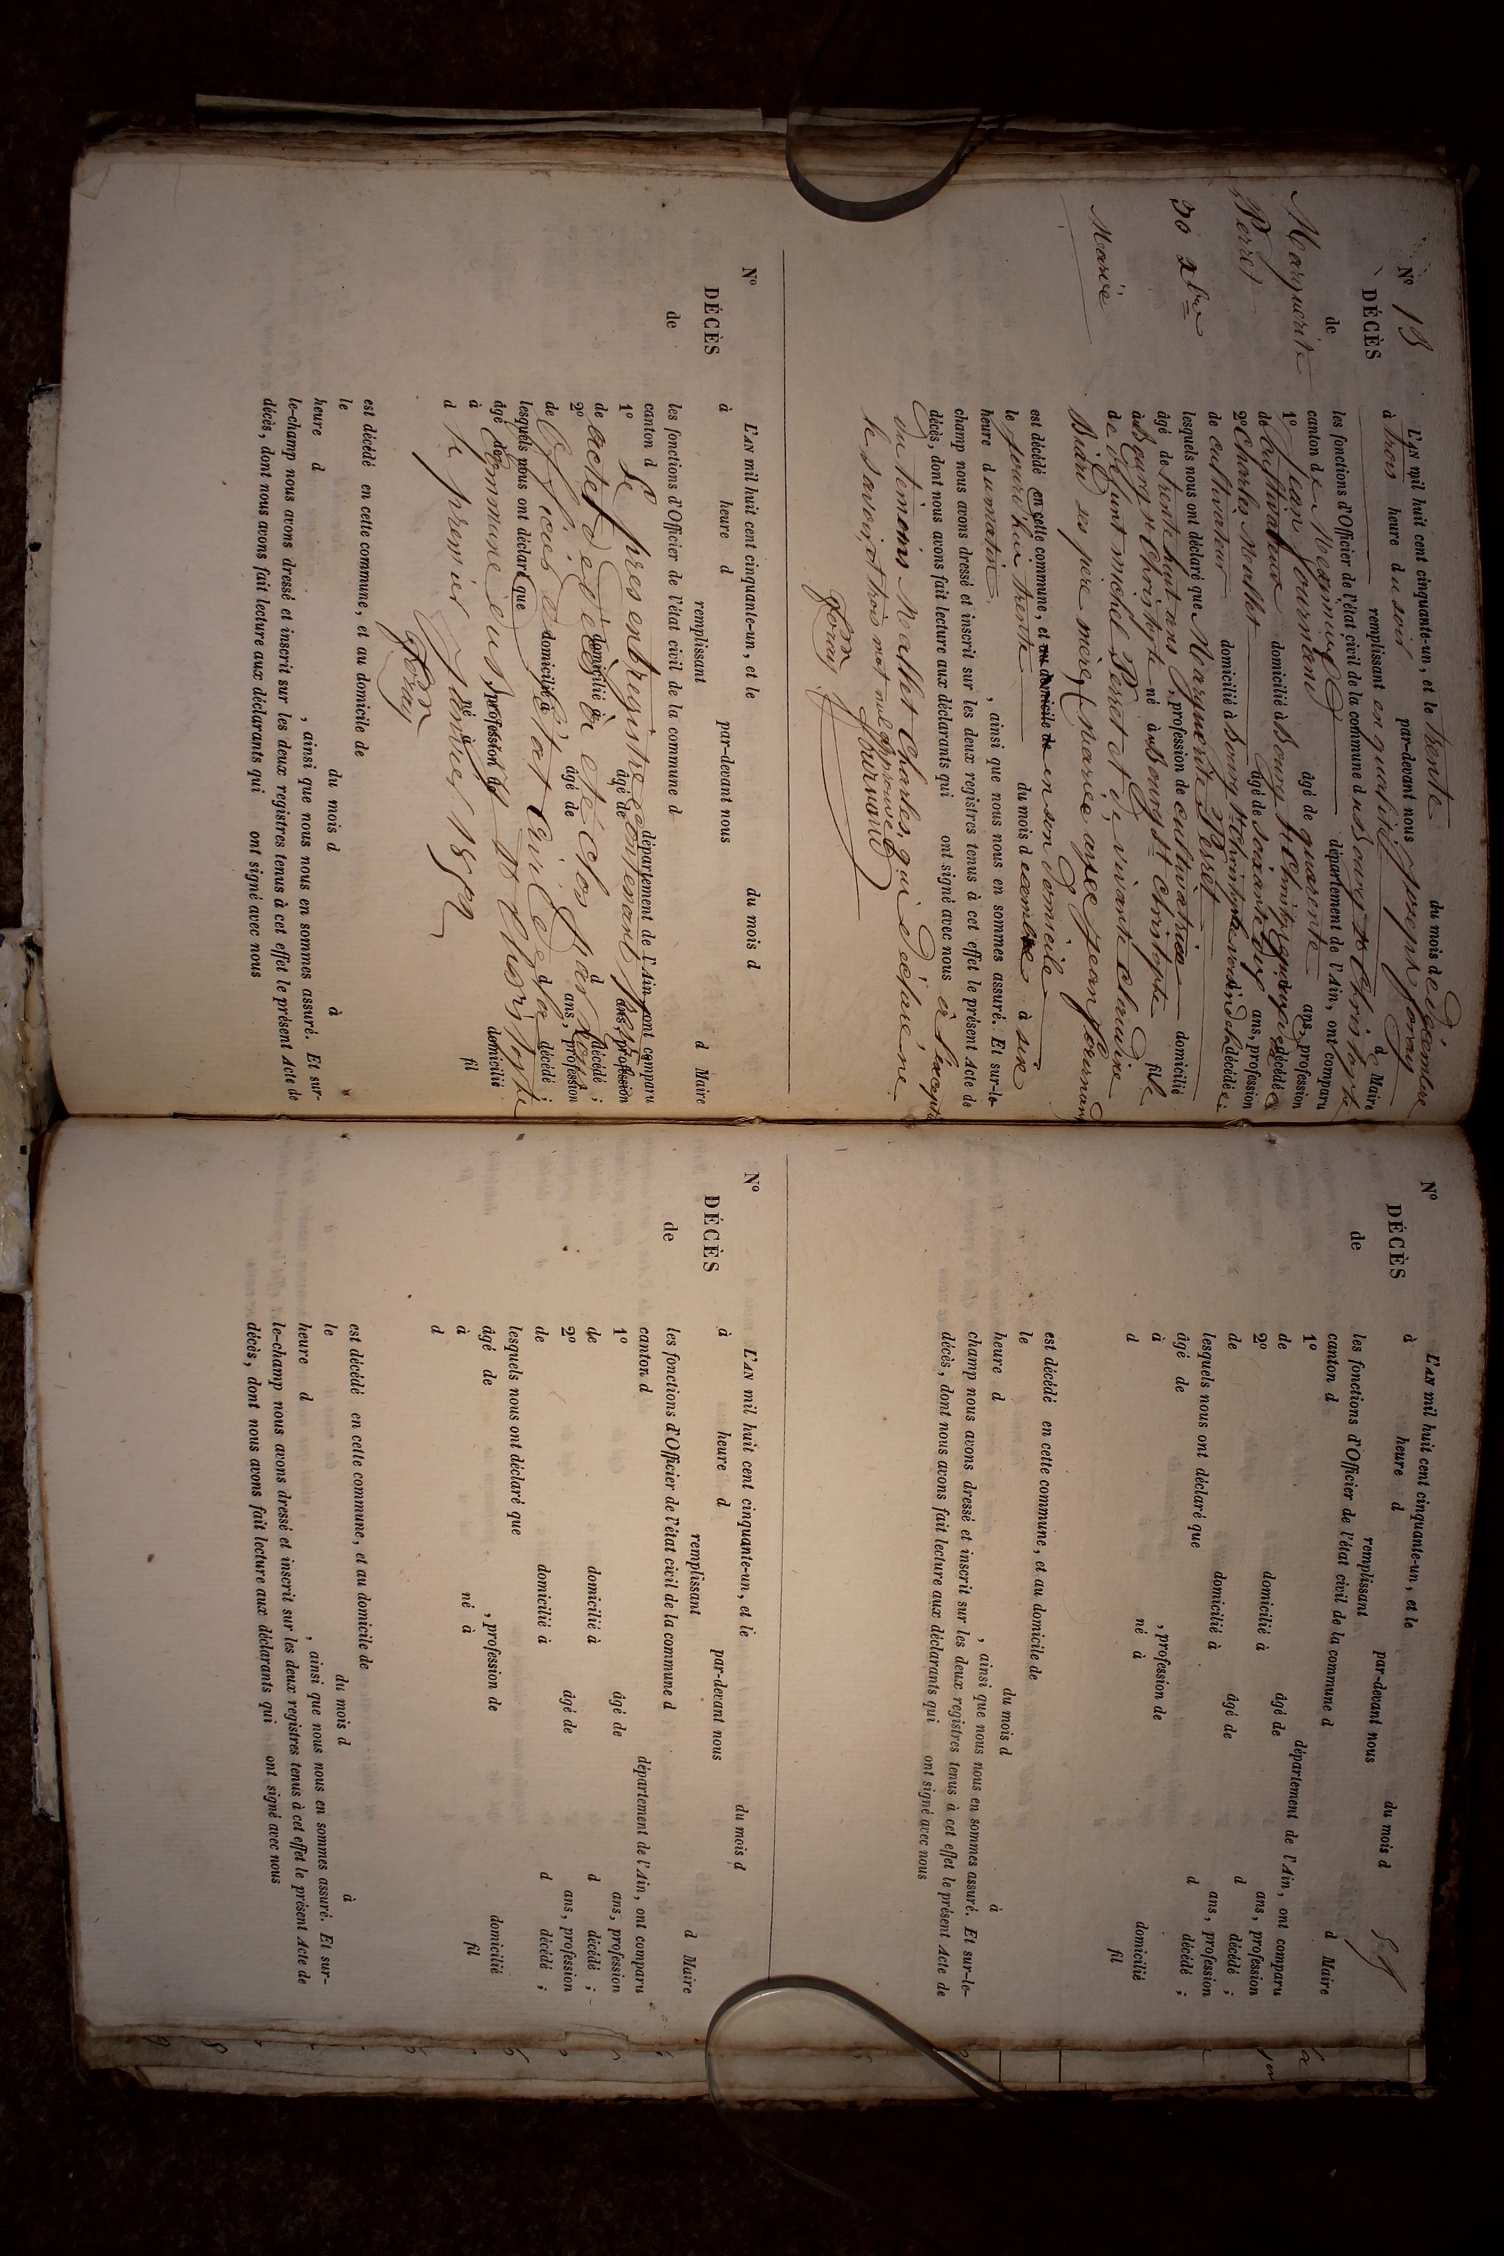 N° 13
DÉCÈS
de
Marguerite
Perret
30 Xbre
Mariée
L'AN mil huit cent cinquante-un, et le trente du mois de décembre
à trois heure du soir par-devant nous joseph foray
remplissant en qualité d Maire
les fonctions d'Officier de l'état civil de la commune du Bourg St Christophe
canton de Meximieux département de l'Ain, ont comparu
1° jean fournand âgé de quarante ans, profession
de cultivateur domicilié à Bourg St Christophe décédé
2° Charles Mallet âgé de soixante ans, profession
de cultivateur domicilié à Bourg St Christophe voisin d décédé;
lesquels nous ont déclaré que Marguerite Perret
âgé de trente huit ans, profession de cultivatrice domicilié
à Bourg St Christophe né à Bourg St Christophe fille
de défunt michel Perret et de vivante claudine
BidRe ses pere mère, Mariée avec jean fournand
est décédé en cette commune, et au domicile de en son domicile
le jourd'hui trente du mois d ecembre à six
heure du matin, ainsi que nous nous en sommes assuré. Et sur-le-
champ nous avons dressé et inscrit sur les deux registres tenus à cet effet le présent Acte de
décès, dont nous avons fait lecture aux déclarants qui ont signé avec nous à l'exception
du témoins Mallet Charles, qui a déclaré ne
le savoir, et trois mot nul approuvé
fournand
foray
N°
DÉCÈS
de
L'AN mil huit cent cinquante-un, et le du mois d
à heure d par-devant nous
remplissant d Maire
les fonctions d'Officier de l'état civil de la commune d
canton d département de l'Ain, ont comparu
1° âgé de ans, profession
de domicilié à d décédé;
2° âgé de ans, profession
de domicilié à d décédé;
lesquels nous ont déclaré que
âgé de , profession de domicilié
à né à fil
d
Le présent registre contenant
actes de décès a été clos par nous
Officier de l'état civil de la
Commune du Bourg St Christophe
le premier janvier 1852
foray
est décédé en cette commune, et au domicile de
le du mois d à
heure d , ainsi que nous nous en sommes assuré. Et sur-
le-champ nous avons dressé et inscrit sur les deux registres tenus à cet effet le présent Acte de
décès, dont nous avons fait lecture aux déclarants qui ont signé avec nous
N°
DÉCÈS
de
L'AN mil huit cent cinquante-un, et le du mois d
à heure d par-devant nous
remplissant d Maire
les fonctions d'Officier de l'état civil de la commune d
canton d département de l'Ain, ont comparu
1° âgé de ans, profession
de domicilié à d décédé;
2° âgé de ans, profession
de domicilié à d décédé;
lesquels nous ont déclaré que
âgé de , profession de domicilié
à né à fil
d
est décédé en cette commune, et au domicile de
le du mois d à
heure d , ainsi que nous nous en sommes assuré. Et sur-le-
champ nous avons dressé et inscrit sur les deux registres tenus à cet effet le présent Acte de
décès, dont nous avons fait lecture aux déclarants qui ont signé avec nous
N°
DÉCÈS
de
L'AN mil huit cent cinquante-un, et le du mois d
à heure d par-devant nous
remplissant d Maire
les fonctions d'Officier de l'état civil de la commune d
canton d département de l'Ain, ont comparu
1° âgé de ans, profession
de domicilié à d décédé;
2° âgé de ans, profession
de domicilié à d décédé;
lesquels nous ont déclaré que
âgé de , profession de domicilié
à né à fil
d
est décédé en cette commune, et au domicile de
le du mois d à
heure d , ainsi que nous nous en sommes assuré. Et sur-
le-champ nous avons dressé et inscrit sur les deux registres tenus à cet effet le présent Acte de
décès, dont nous avons fait lecture aux déclarants qui ont signé avec nous